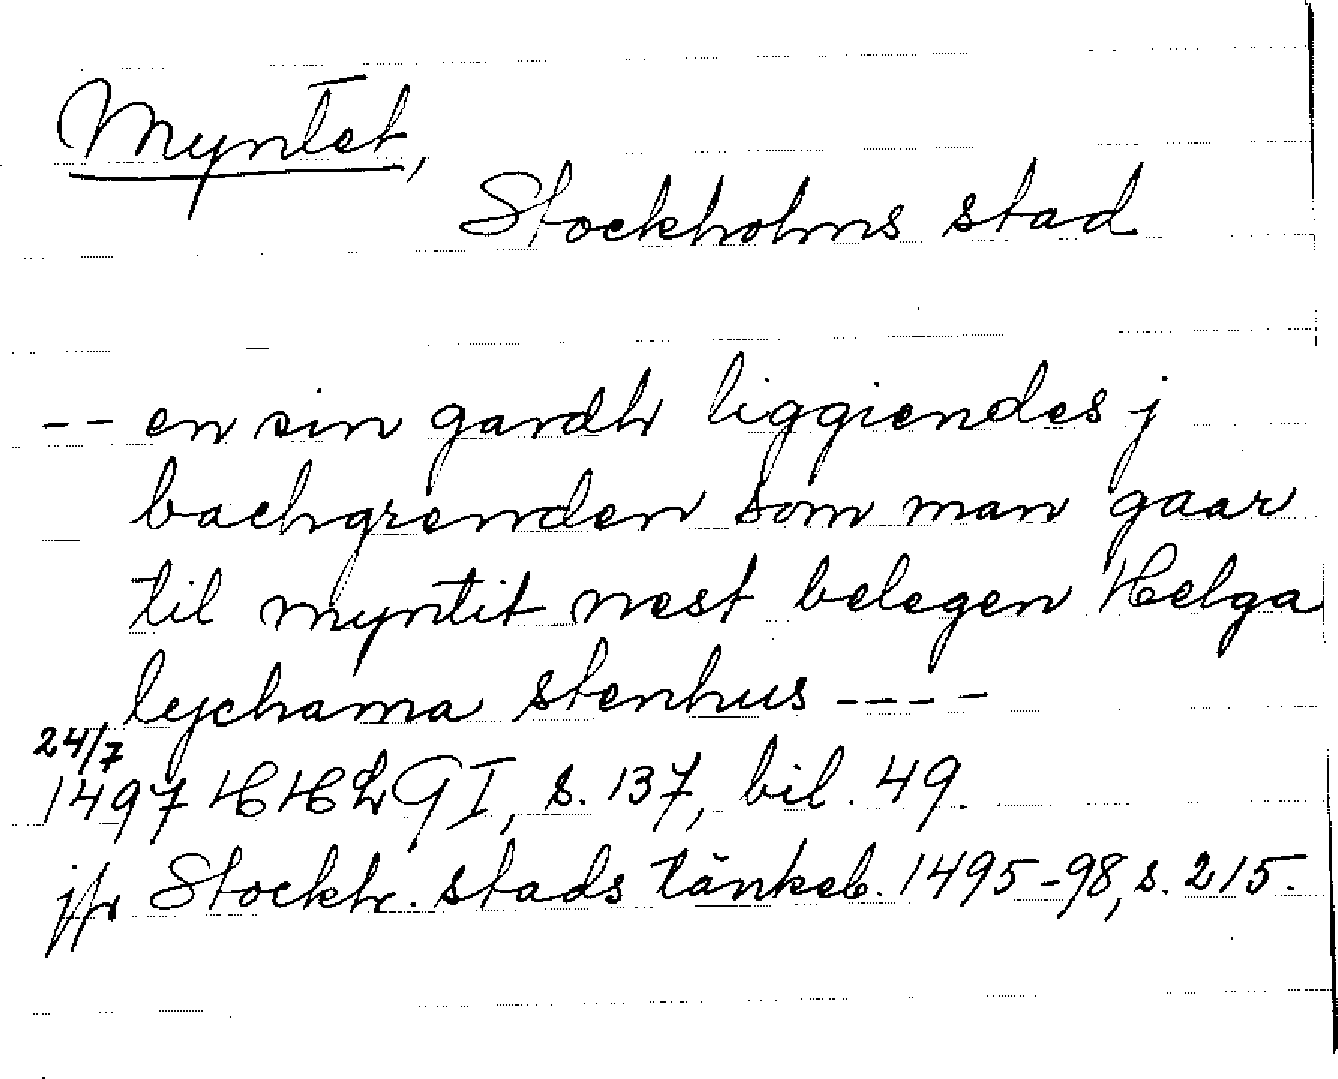 Myntet,
Stockholms stad
-- en sin gardh liggiendes j
bachgrenden som man gaar
til myntit nest belegen Helga
lychama stenhus ----
24/7
1497 HHLG I, s. 137, bil. 49.
jfr Stockh. stads tänkeb. 1495-98, s. 215.